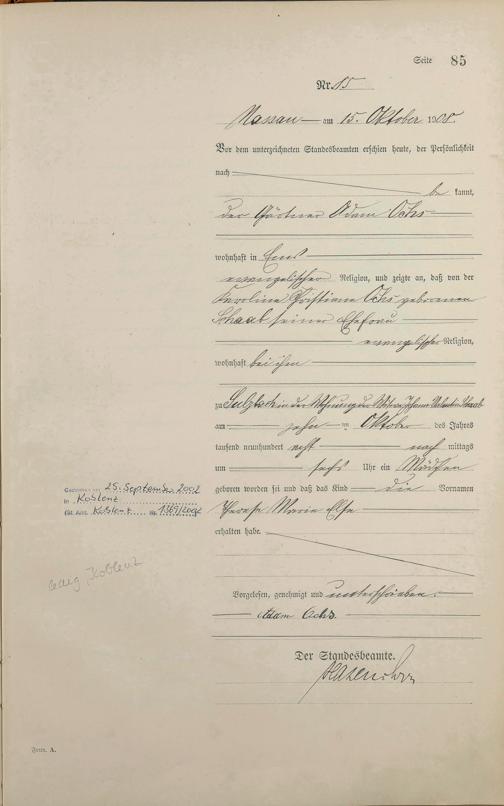 Seite 85
Nr. 85
Nassau am 15. Oktober 1908.
Vor dem unterzeichneten Standesbeamten erschien heute, der Persönlichkeit
nach
be kannt,
der Gärtner Adam Ochs
wohnhaft in Ems
evangelischer Religion, und zeigte an, daß von der
Karoline Christiane Ochs geborenen
Schaab seiner Ehefrau
evangelischer Religion,
wohnhaft bei ihm
zu Sulzbach in der Wohnung der Witwe Johann
am zehn ten Oktober des Jahres
tausend neunhundert acht nach mittags
um sechs Uhr ein Mädchen
geboren worden sei und daß das Kind die Vornamen
Therese Marie Else
erhalten habe.
am 25. September 2002
in Koblenz
Koblenz Nr. 1369/2002
Koblenz
Vorgelesen, genehmigt und unterschrieben.
Adam Ochs.
Der Standesbeamte.
Form. A.